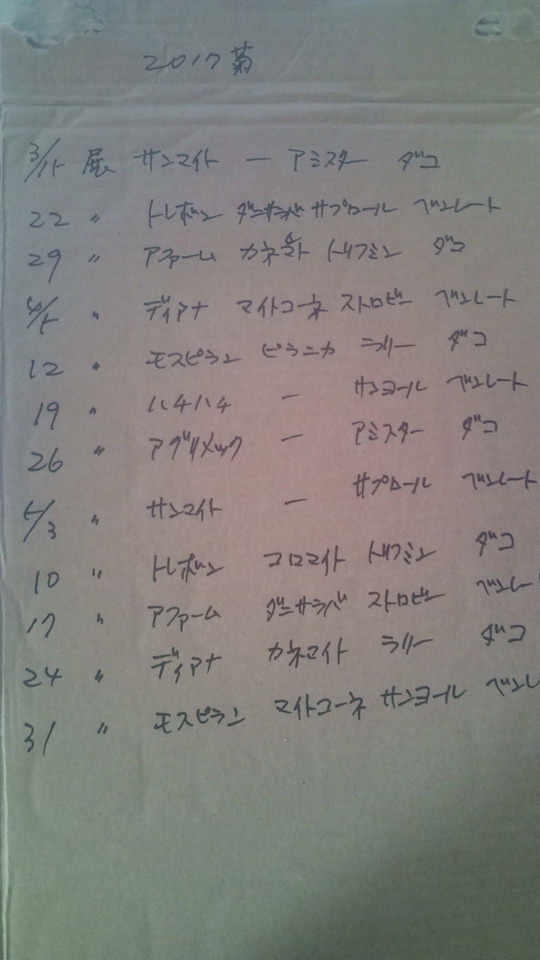 2017 菊
3/15 展 サンマイト ー アミスター ダコ
22 〃 トレボン ダニサラバ サプロール ベンレート
29 〃 アファーム カネマイト トリフミン ダコ
4/5 〃 ディアナ マイトコーネ ストロビー ベンレート
12 〃 モスピラン ピラニカ ラリー ダコ
19 〃 ハチハチ ー サンヨール ベンレート
26 〃 アグリメック ー アミスター ダコ
5/3 〃 サンマイト ー サプロール ベンレート
10 〃 トレボン コロマイト トリフミン ダコ
17 〃 アファーム ダニサラバ ストロビー ベンレー
24 〃 ディアナ カネマイト ラリー ダコ
31 〃 モスピラン マイトコーネ サンヨール ベンレ